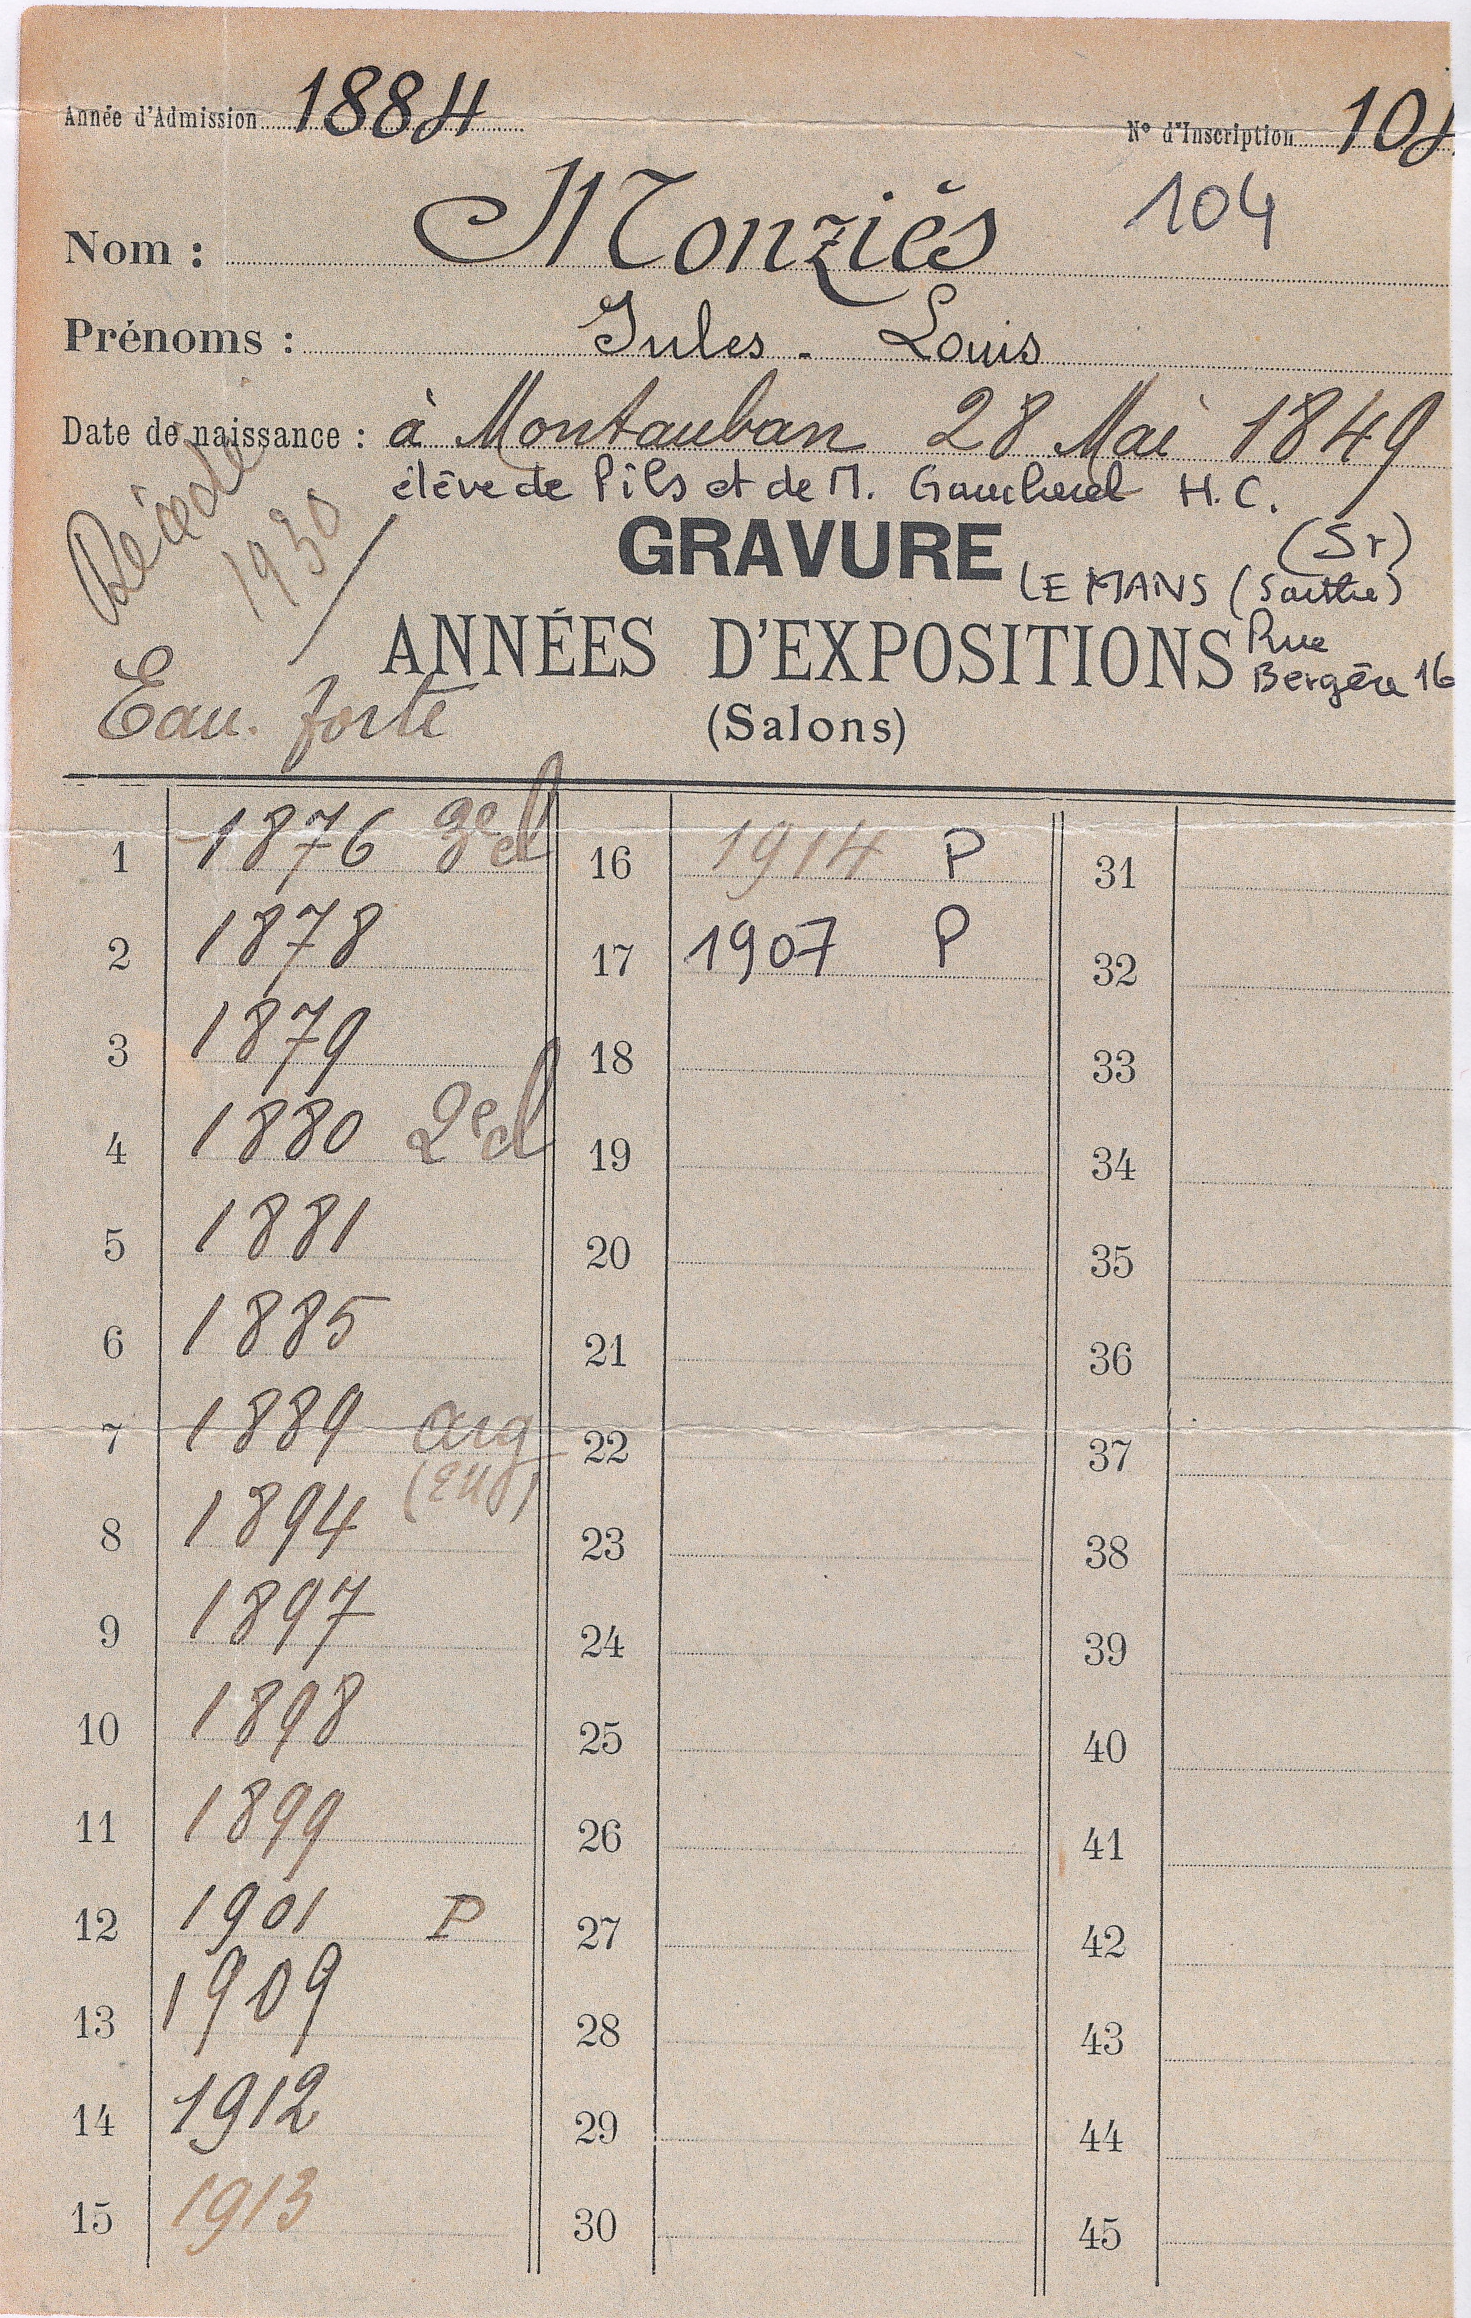 Année d'Admission 1884
N° d'Inscription 104
104
Nom : Monziès
Prénoms : Jules - Louis
Date de naissance : à Montauban 28 Mai 1849
élève de Pils et de M. Gaucherel H.C.
Décédé
1930
GRAVURE
(Sr)
LE MANS (Sarthe)
Rue
Bergère 16
ANNÉES D'EXPOSITIONS
Eau. forte
(Salons)
1 1876 3e cl 16 1914 P 31
2 1878 17 1907 P 32
3 1879 18 33
4 1880 2e cl 19 34
5 1881 20 35
6 1885 21 36
7 1889 arg 22 37
8 1894 23 38
9 1897 24 39
10 1898 25 40
11 1899 26 41
12 1901 P 27 42
13 1909 28 43
14 1912 29 44
15 1913 30 45